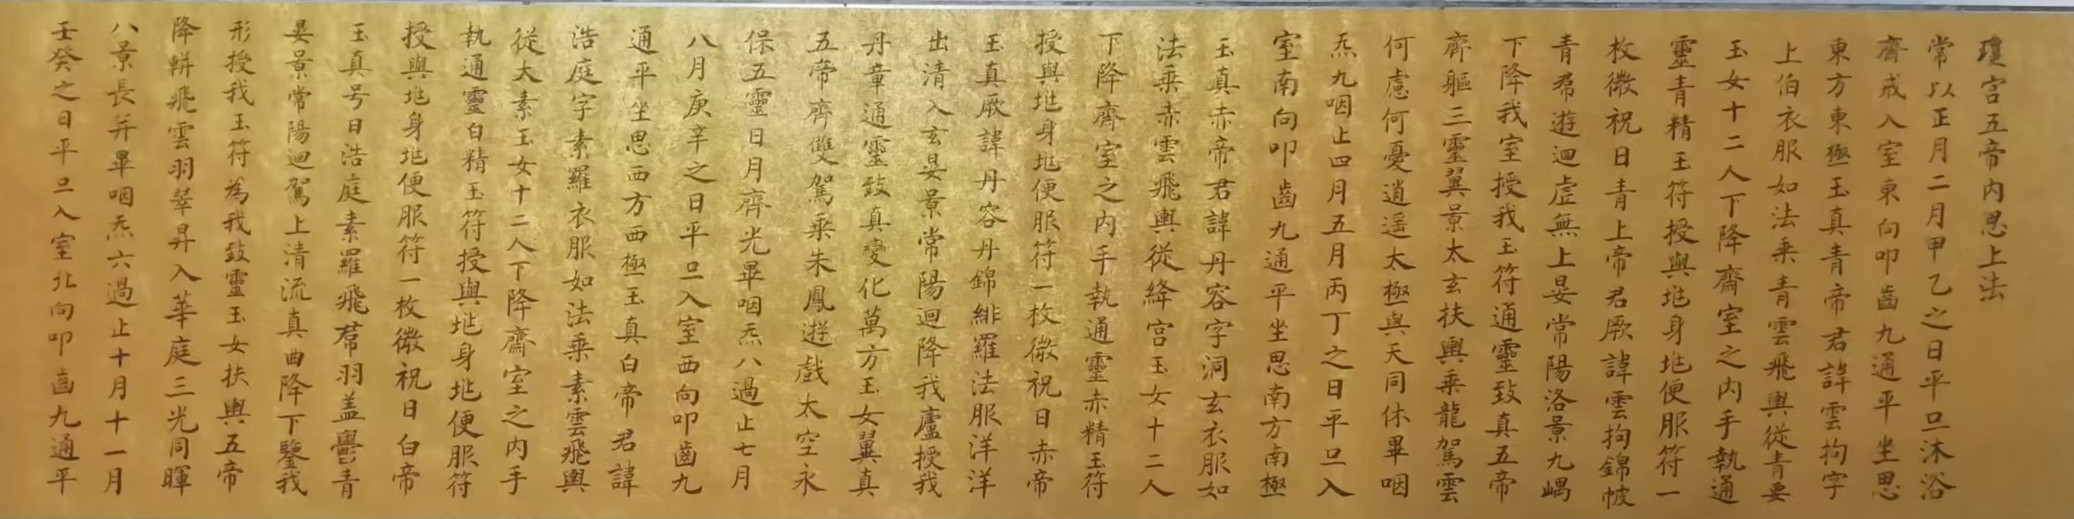 瓊宮五帝內思上法
常以正月二月甲乙之日平旦沐浴
齋戒入室東向叩齒九通平坐思
東方東極玉真青帝君諱雲拘字
上伯衣服如法乘青雲飛輿從青要
玉女十二人下降齋室之內手執通
靈青精玉符授與兆身兆便服符一
枚微祝曰青上帝君厥諱雲拘錦帔
青帬遊迴虛無上晏常陽洛景九嵎
下降我室授我玉符通靈致真五帝
齊軀三靈翼景太玄扶輿乘龍駕雲
何慮何憂逍遙太極與天同休畢咽
炁九咽止四月五月丙丁之日平旦入
室南向叩齒九通平坐思南方南極
玉真赤帝君諱丹容字洞玄衣服如
法乘赤雲飛輿從絳宮玉女十二人
下降齋室之內手執通靈赤精玉符
授與兆身兆便服符一枚微祝曰赤帝
玉真厥諱丹容丹錦緋羅法服洋洋
出清入玄晏景常陽迴降我廬授我
丹章通靈致真變化萬方玉女翼真
五帝齊雙駕乘朱鳳遊戲太空永
保五靈日月齊光畢咽炁八過止七月
八月庚辛之日平旦入室西向叩齒九
通平坐思西方西極玉真白帝君諱
浩庭字素羅衣服如法乘素雲飛輿
從太素玉女十二人下降齋室之內手
執通靈白精玉符授與兆身兆便服符
授與兆身兆便服符一枚微祝曰白帝
玉真号曰浩庭素羅飛帬羽盖鬱青
晏景常陽迴駕上清流真曲降下鑒我
形授我玉符為我致靈玉女扶輿五帝
降軿飛雲羽翠昇入華庭三光同暉
八景長并畢咽炁六過止十月十一月
壬癸之日平旦入室北向叩齒九通平